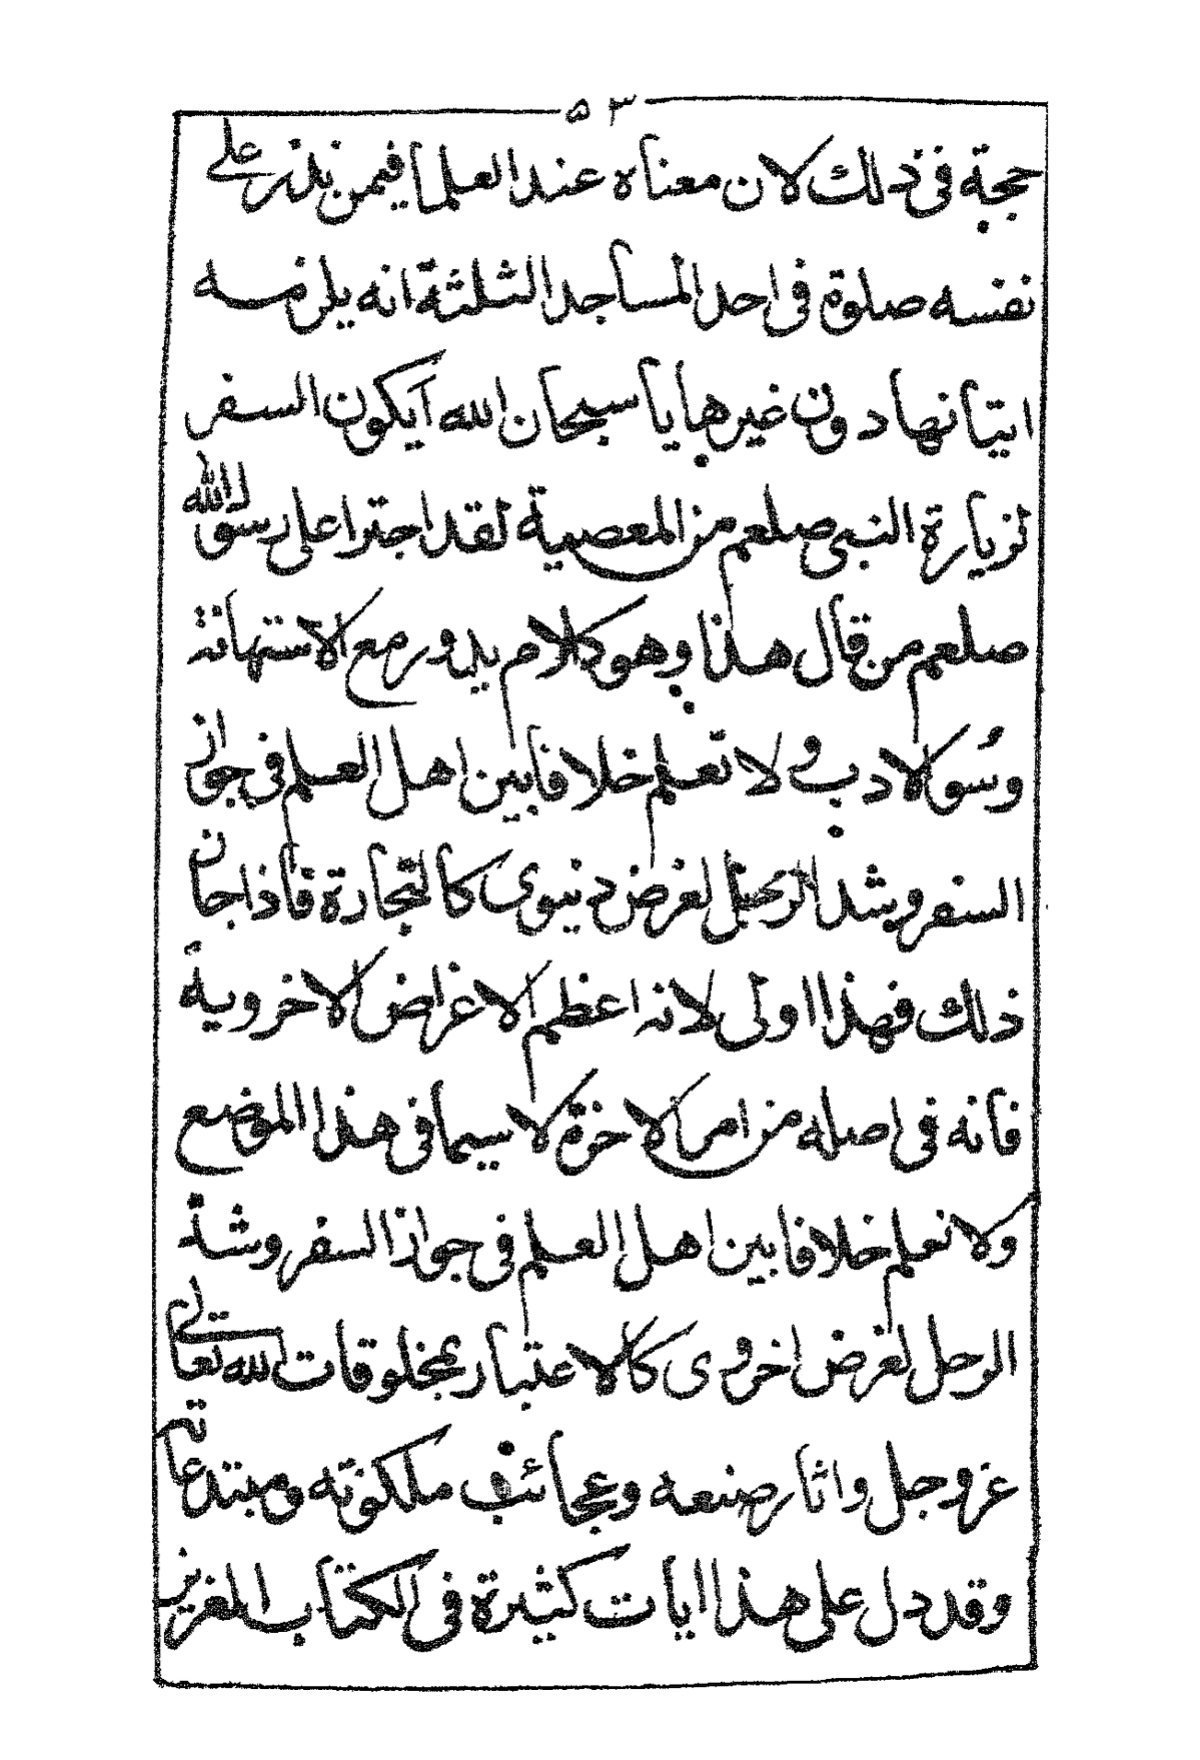 ٥٣
حجة فى ذلك لان معناه عند العلما فيمن نذر على
نفسه صلوة فى احد المساجد الثلثة انه يلزمه
اتيانها دون غيرها يا سبحان الله آيكون السفر
لزيارة النبى صلعم من المعصية لقد اجترا على رسول الله
صلعم من قال هذا وهو كلام يدور مع الاستهانة
وسُو الادب ولا نعلم خلافا بين اهل العلم فى جواز
السفر وشد الرحيل لغرض دنيوى كالتجارة فاذا جاز
ذلك فهذا اولى لانه اعظم الاغراض الاخروية
فانه فى اصله من امر الاخرة لا سيما فى هذا الموضع
ولا نعلم خلافا بين اهل العلم فى جواز السفر وشد
الرحل لغرض اخروى كالاعتبار بمخلوقات الله تعالى
عز وجل واثار صنعه وعجائب ملكوته ومبتدعاته
وقد دل على هذا ايات كثيرة فى الكتاب العزيز